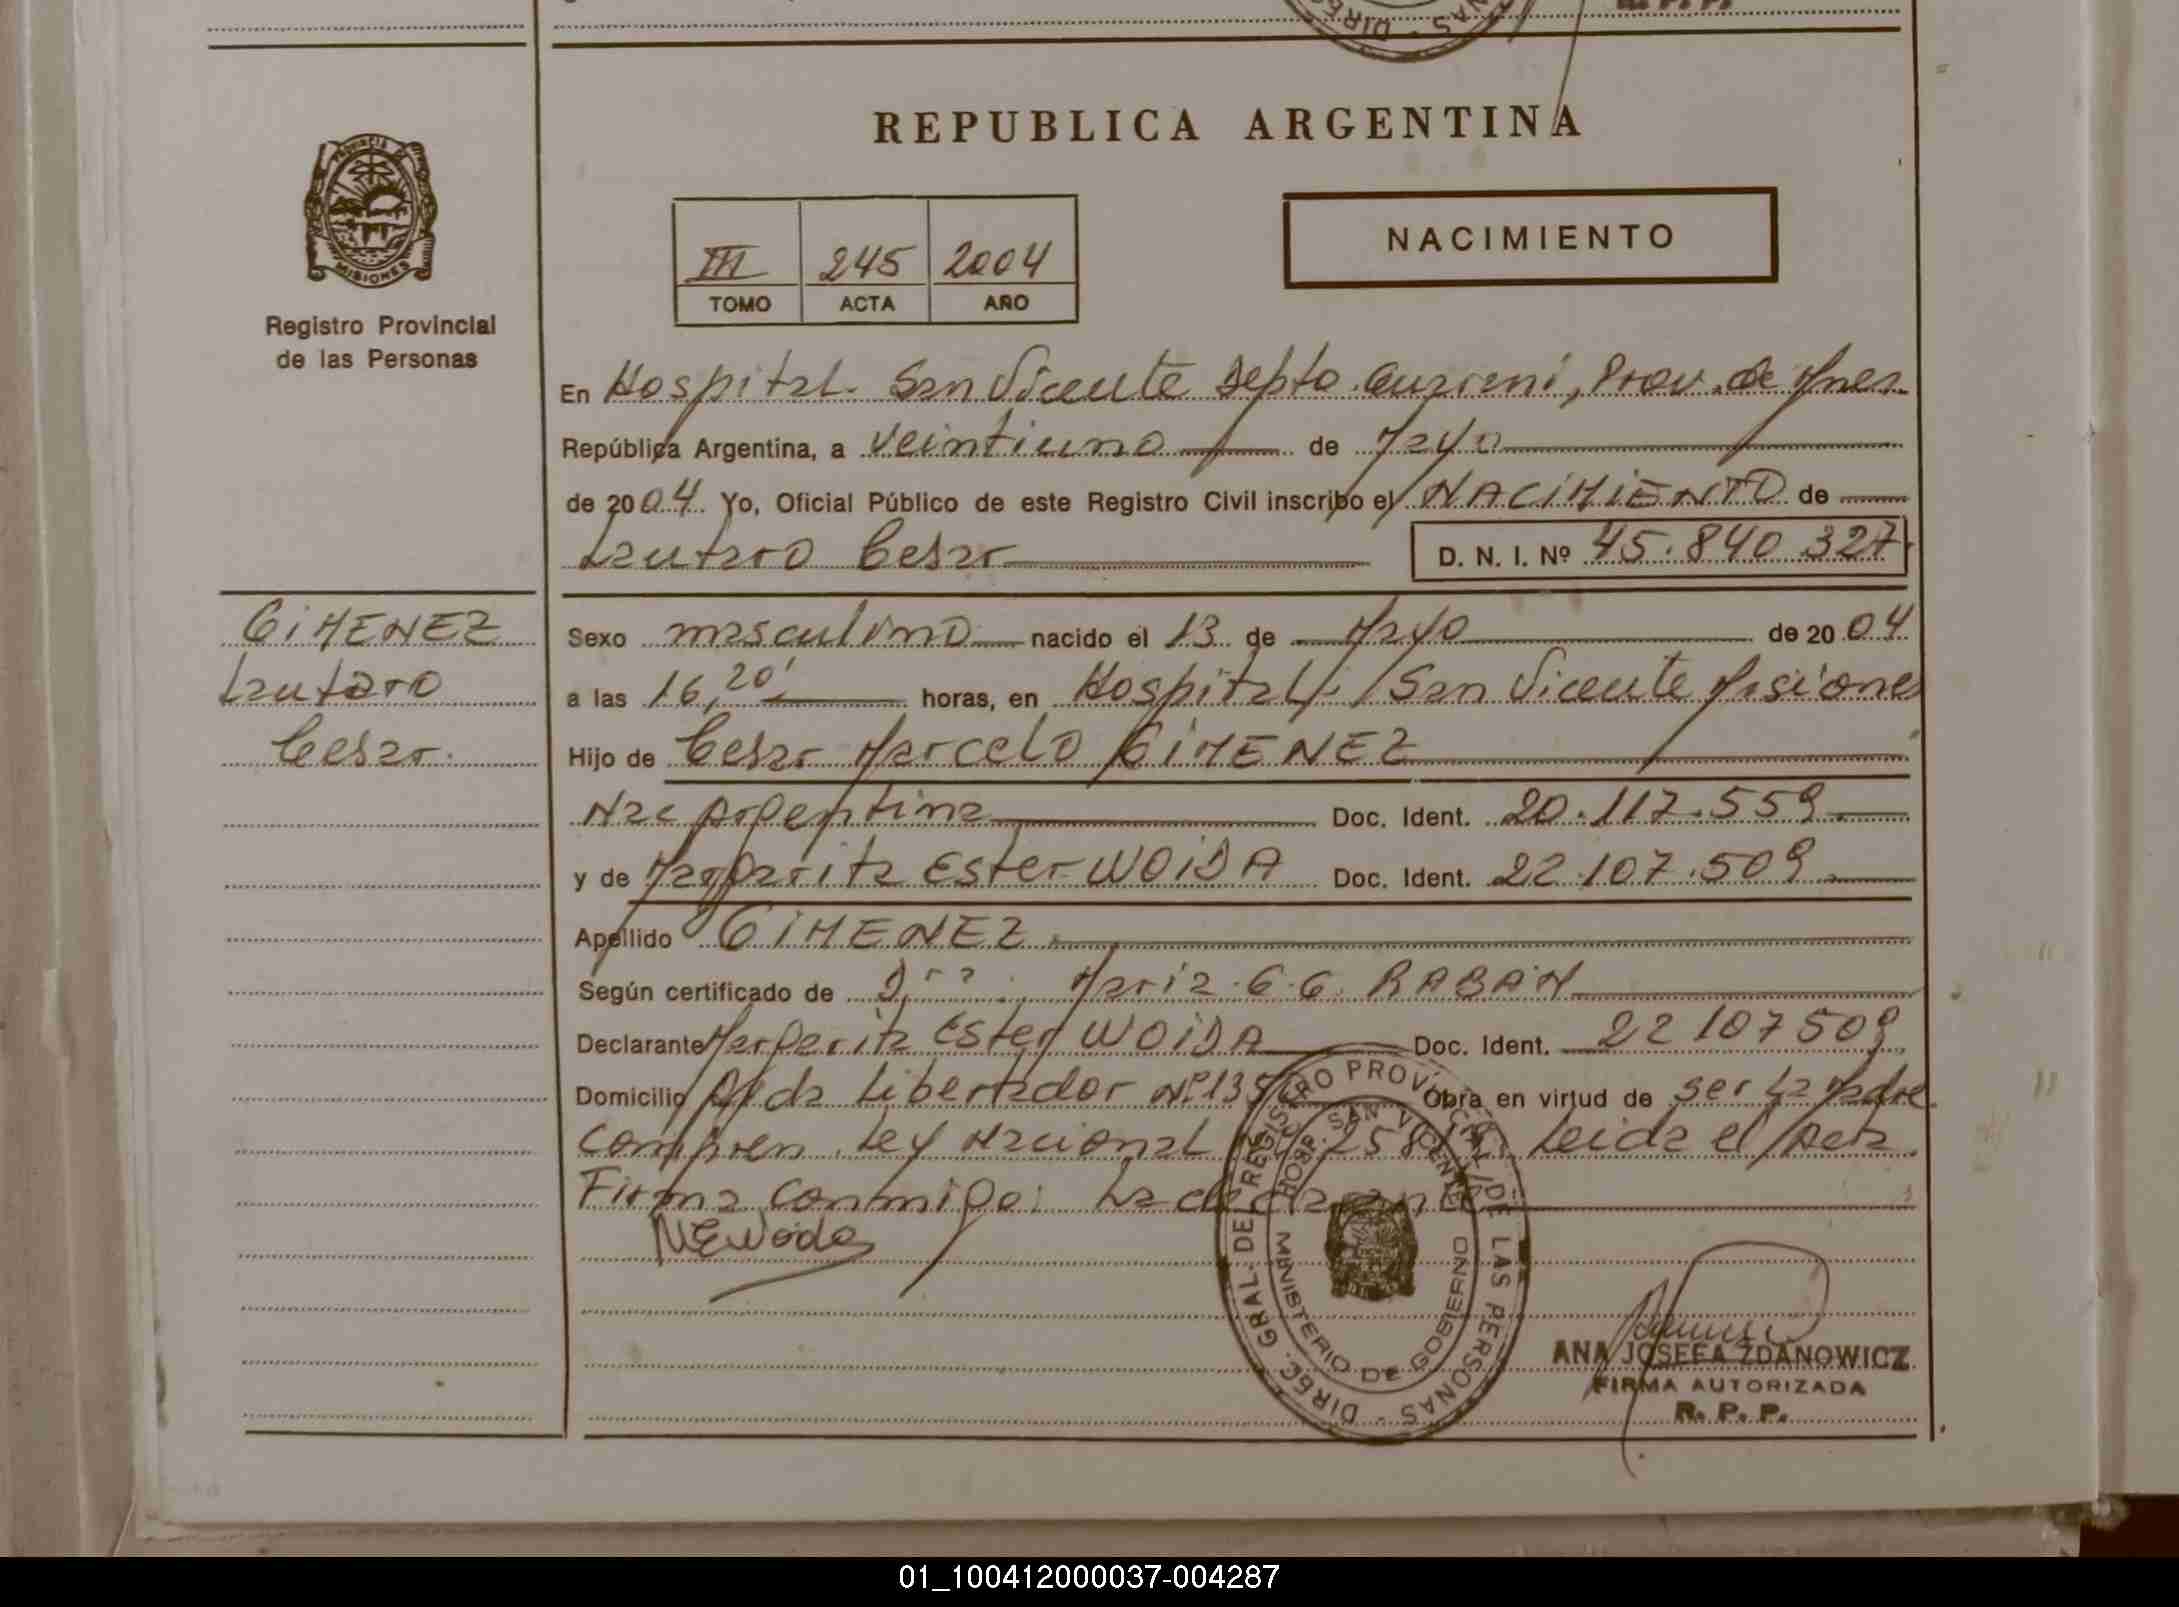 REPUBLICA ARGENTINA
PROVINCIA DE
MISIONES
Registro Provincial
de las Personas
III 245 2004
TOMO ACTA AÑO
NACIMIENTO
En Hospital. San Vicente Depto. Guarani, Prov. de Mnes.
República Argentina, a veintiuno de Mayo
de 2004. Yo, Oficial Público de este Registro Civil inscribo el NACIMIENTO de
Lautaro Cesar D. N. I. Nº 45.840.327
GIMENEZ
Lautaro
Cesar.
Sexo masculino nacido el 13 de Mayo de 2004
a las 16,20' horas, en Hospital. San Vicente Misiones
Hijo de Cesar Marcelo GIMENEZ
Nac Argentina Doc. Ident. 20.117.559
y de Margarita Ester WOIDA Doc. Ident. 22.107.509
Apellido GIMENEZ
Según certificado de Maria G. G. RABAN
Declarante Margarita Ester WOIDA Doc. Ident. 22107509
Domicilio Avda Libertador Nº 135 Obra en virtud de ser La Madre
Ley Nacional Leida el Acta
Firma Conmigo: La declarante
MEWoida
DIREC. GRAL. DE REGISTRO PROVINCIAL DE LAS PERSONAS
HOSP. SAN VICENTE
MINISTERIO DE GOBIERNO
ANA JOSEFA ZDANOWICZ
FIRMA AUTORIZADA
R. P. P.
01_100412000037-004287